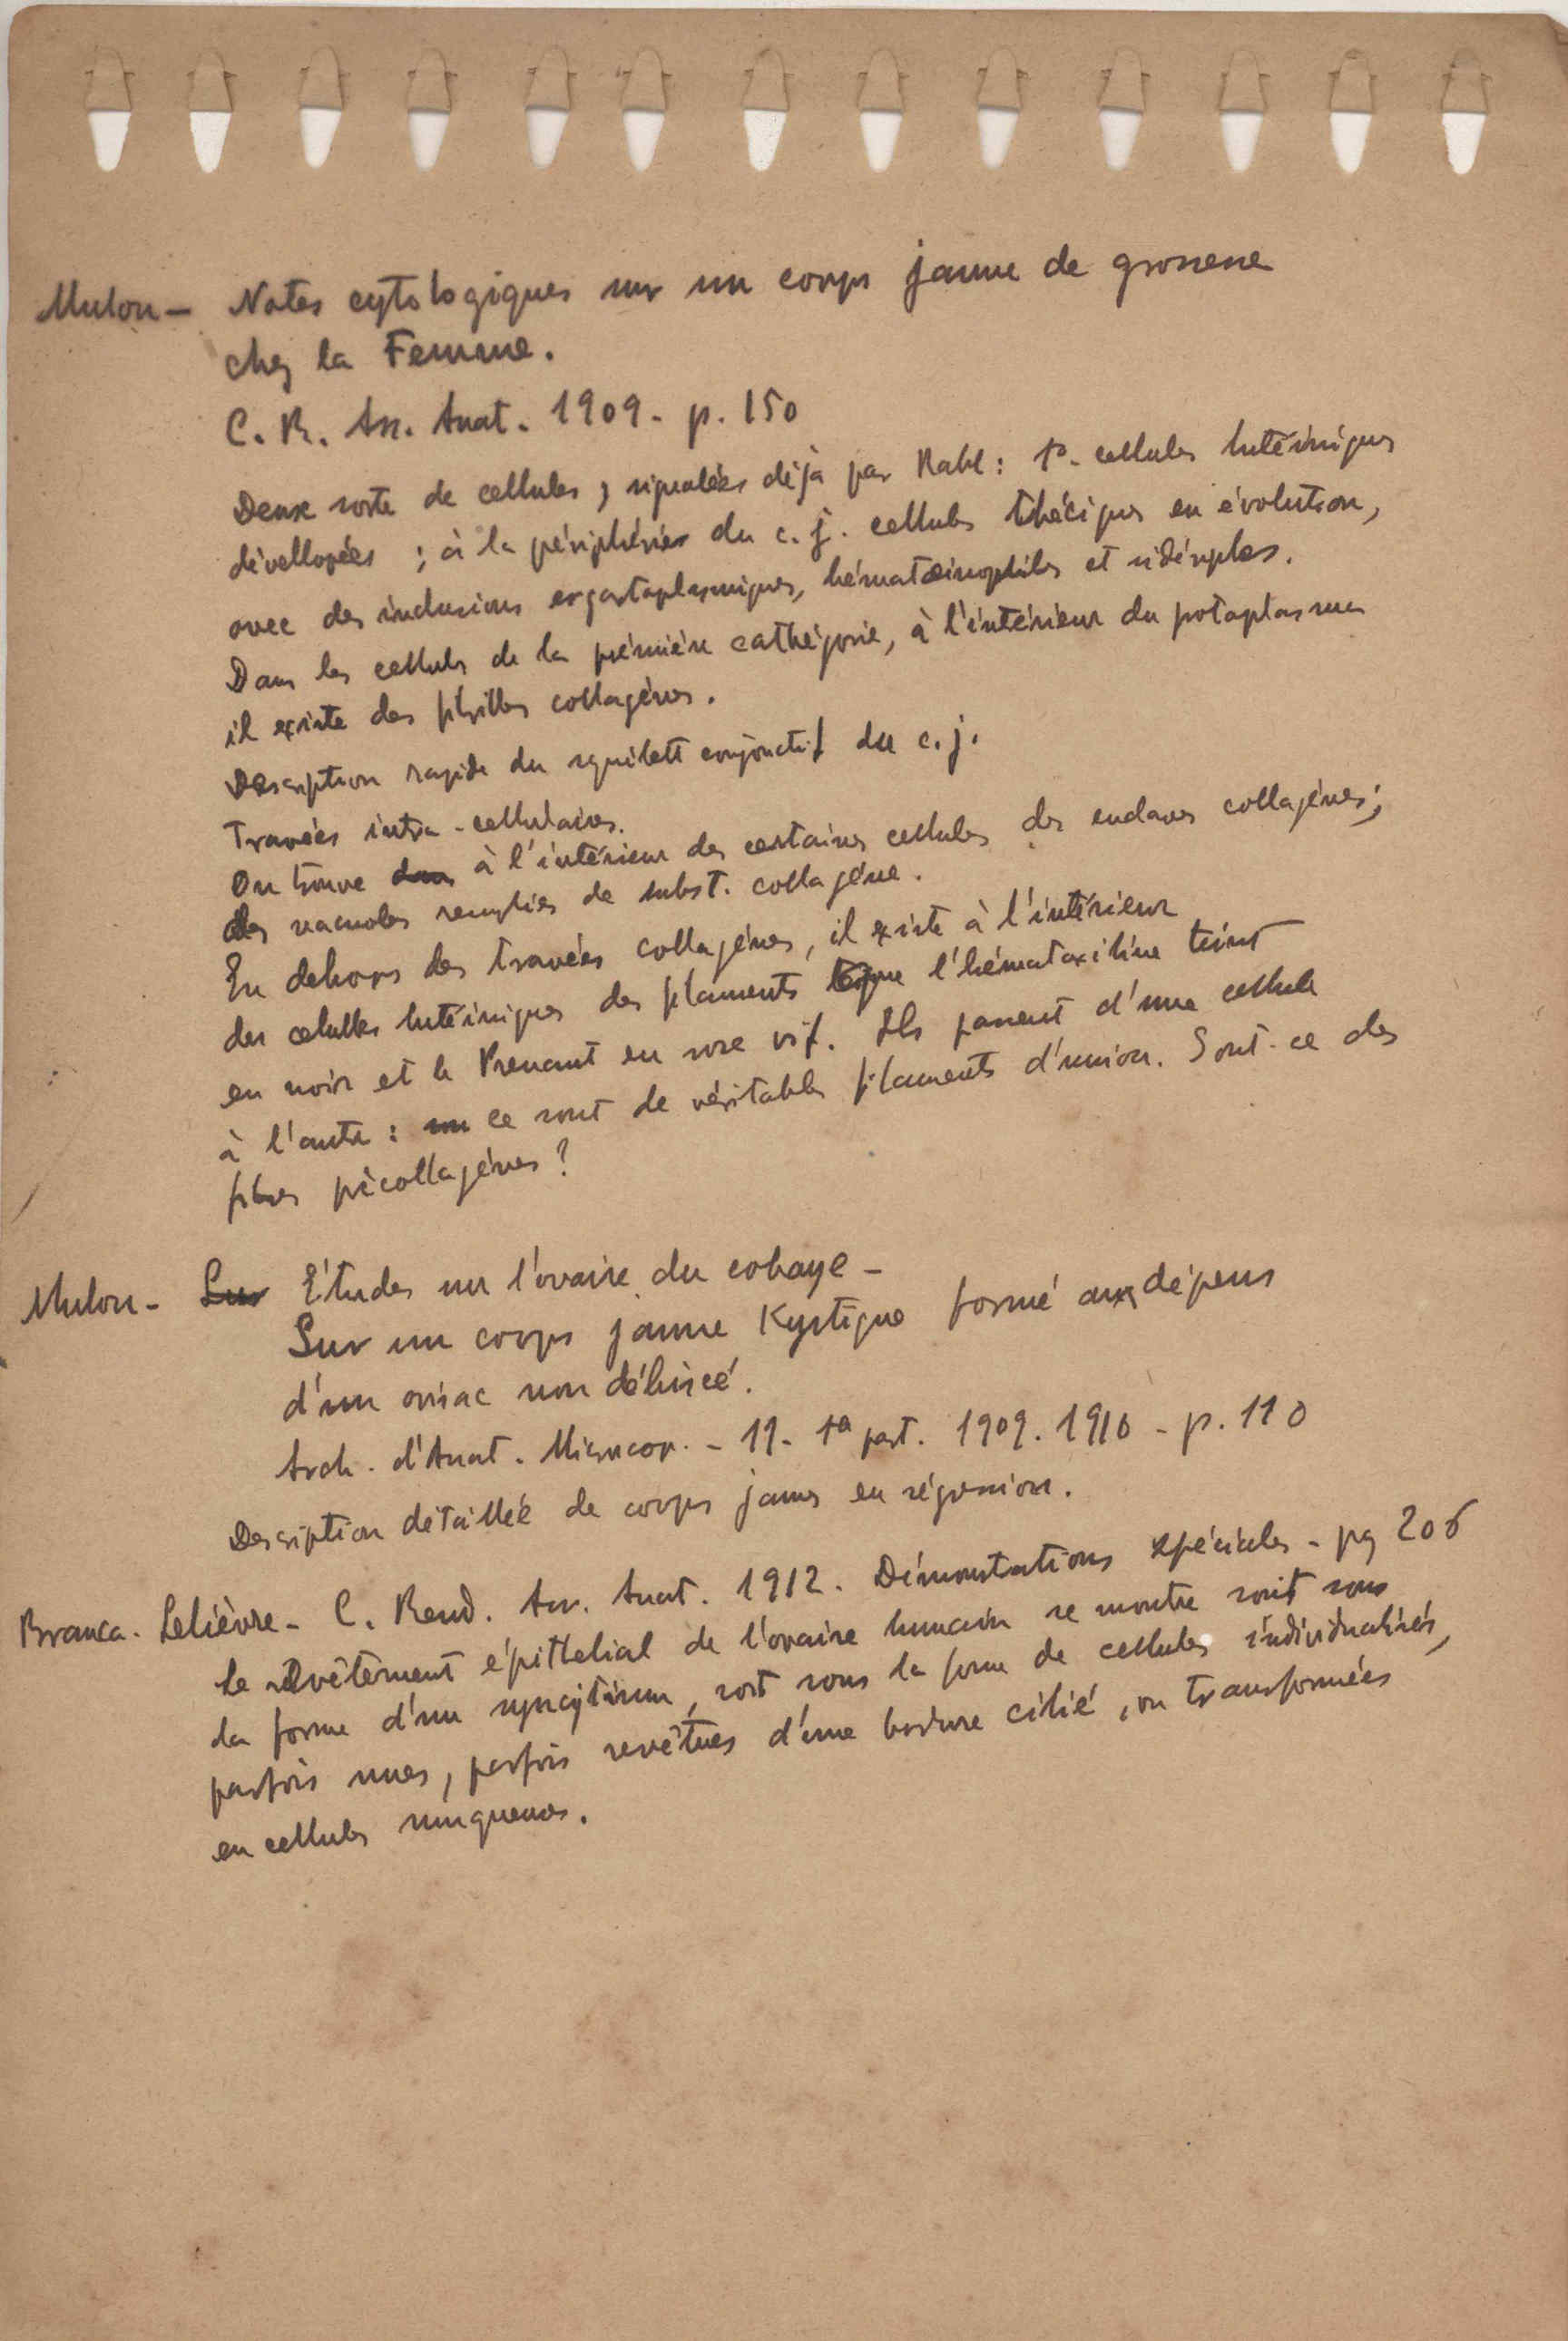 Mulon — Notes cytologiques sur un corps jaune de grossesse
chez la Femme.
C. R. Ass. Anat. 1909 - p. 150
Deux sorte de cellules, signalées déjà par Rabl : 1º- cellules lutéiniques
dévellopées ; à la périphérie du c. j. cellules théciques en évolution,
avec des inclusions ergastoplasmiques, hématoeinophiles et sidérophiles.
Dans les cellules de la prémière cathégorie, à l'intérieur du potoplasma
il existe des fibrilles collagènes.
Description rapide du squelett conjonctif du c. j.
Travées intra-cellulaires.
On trouve dans à l'intérieur des certaines cellules des enclaves collagènes;
des vacuoles remplies de subst. collagène.
En dehors des travées collagènes, il existe à l'intérieur
des celulles lutéiniques des filaments que l'hématoxiline teint
en noir et le Prenant en rose vif. Ils passent d'une cellule
à l'autre : ce sont de véritables filaments d'union. Sont-ce des
fibres précollagènes ?
Mulon - Sur Études sur l'ovaire du cobaye -
Sur un corps jaune Kystique formé aux dépens
d'un ovisac non déhiscé.
Arch. d'Anat. Microscop. - 11 - 1ª part. 1909. 1910 - p. 110
Description détaillée de corps jaunes en régression.
Branca - Lelièvre - C. Rend. Ass. Anat. 1912. Démonstrations spéciales - pg 206
Le revêtement épithelial de l'ovaire humain se montre soit sous
la forme d'un syncytium, soit sous la forme de cellules individualisés,
parfois nues, parfois revêtues d'une bordure cilié, ou transformées
en cellules muqueuses.